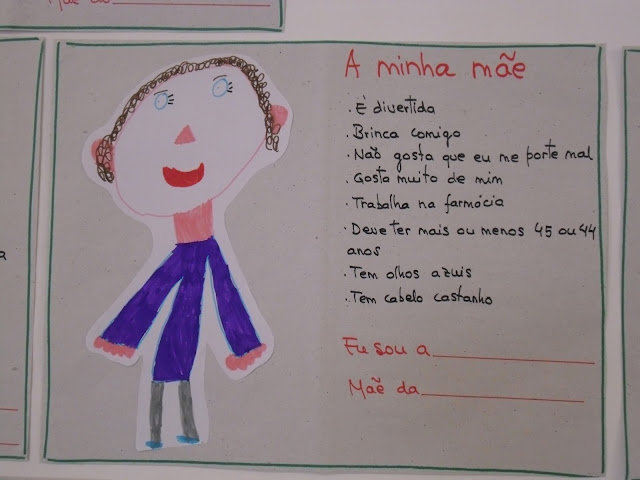 Mãe do
A minha mãe
. É divertida
. Brinca comigo
. Não gosta que eu me porte mal
. Gosta muito de mim
. Trabalha na farmácia
. Deve ter mais ou menos 45 ou 44
anos
. Tem olhos azuis
. Tem cabelo castanho
Eu sou a
Mãe da
a